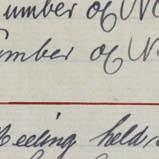 umber of N
umber of N
Meeting held